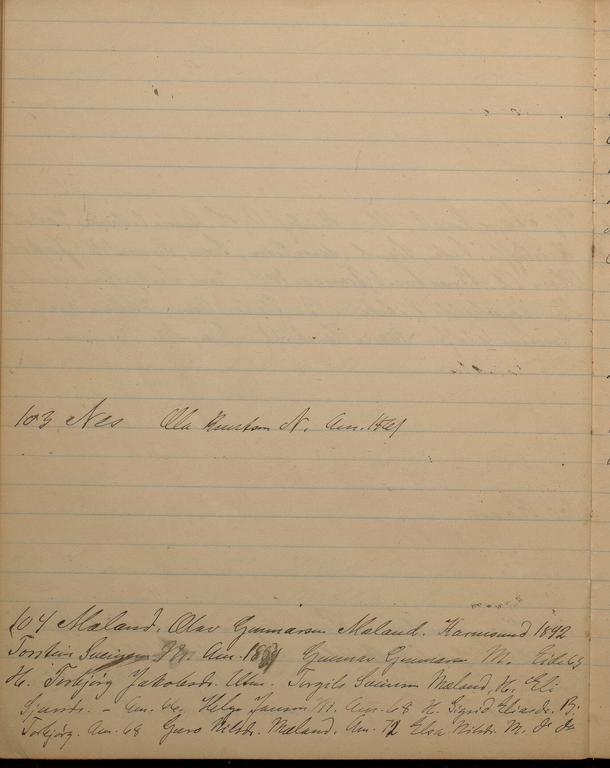 103 Nes Ola Knutson N. Am. 1861
104 Mæland. Olav Gunnarson Mæland. Karmsund 1892
Torstein Sveinson M. Am. 18 Gunnar Gunnarson M. Eide 63
H. Torbjørg Jakobsdr. Utm. Torgils Sveinson Mæland, H. Eli
Am. 66. Helge Janson M. Am. 68 H. Sigrid Eliasdr. B.
Torbjørg. Am. 68 Guro Nilsdr. Mæland. Am. 72 Elsa Nilsdr. M. do do